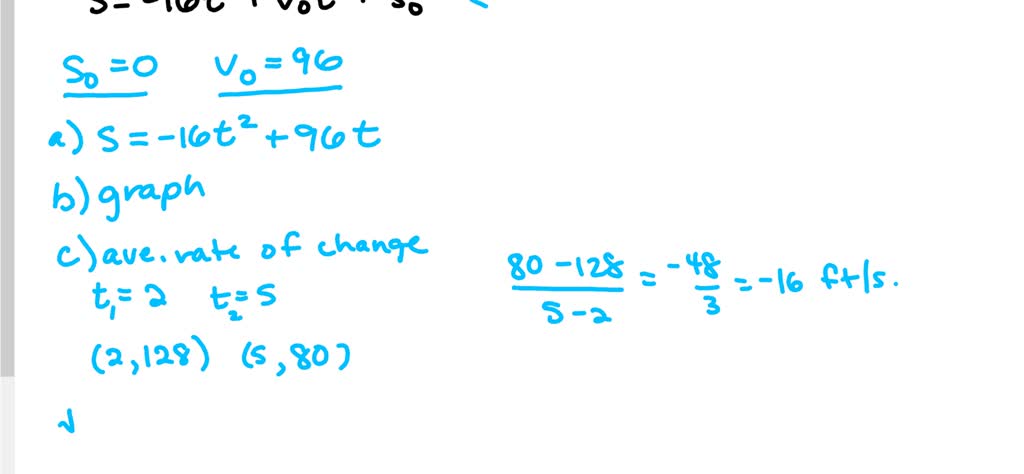 s = -16t + v₀t + s₀
S₀ = 0 V₀ = 96
a) S = -16t² + 96t
b) graph
c) ave. rate of change
t₁ = 2 t₂ = 5
(2, 128) (5, 80)
80 - 128 / 5 - 2 = -48 / 3 = -16 ft/s.